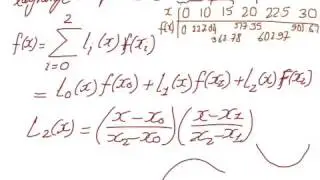 x 0 10 15 20 22.5 30
f(x) 0 227.04 362.78 517.35 602.97 901.67
f(x) = ∑_{i=0}^{2} l_i(x) f(x_i)
= l_0(x) f(x_0) + l_1(x) f(x_1) + l_2(x) f(x_2)
L_2(x) = ((x-x_0)/(x_2-x_0)) ((x-x_1)/(x_2-x_1))